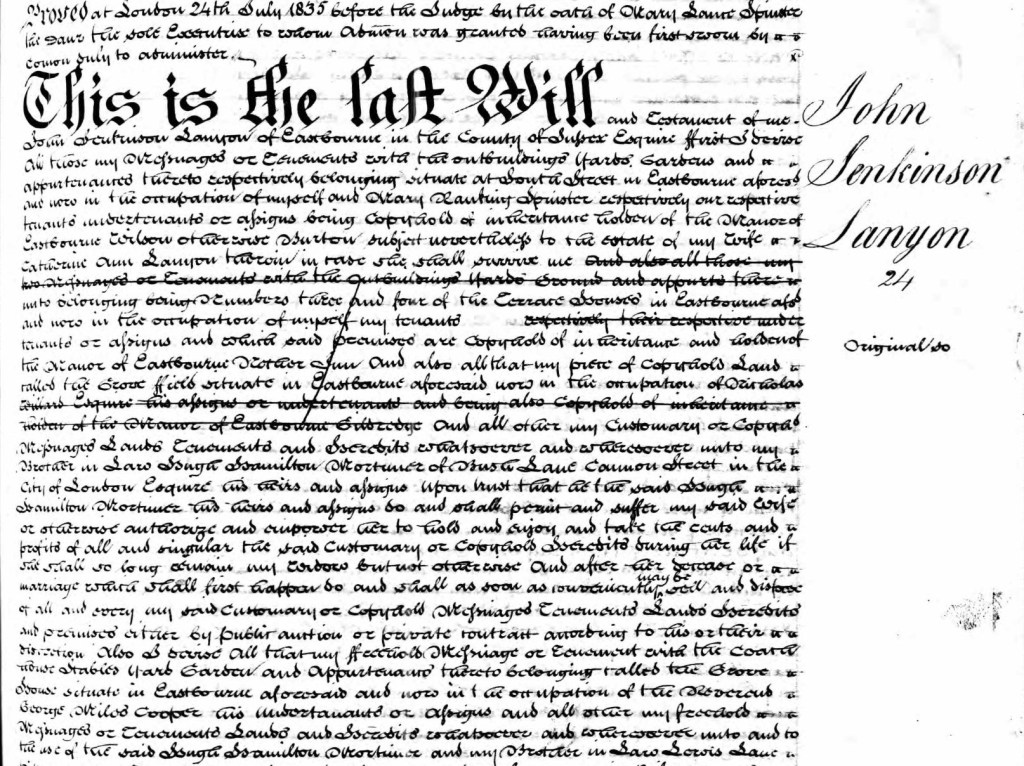 Proved at London 24th July 1835 before the Judge by the oath of Mary Lance Spinster
the Daur the sole Executrix to whom Admon was granted having been first sworn by
Comon duly to administer.
This is the last Will and Testament of me
John Jenkinson Lanyon of Eastbourne in the County of Sussex Esquire ffirst I devise
All those my Messuages or Tenements with the outbuildings Yards, Gardens and
appurtenances thereto respectively belonging situate at South Street in Eastbourne aforesd
and now in the occupation of myself and Mary Ranking Spinster respectively our respective
tenants undertenants or assigns being Copyhold of inheritance holden of the Manor of
Eastbourne Wilson otherwise Burton subject nevertheless to the estate of my Wife
Catherine Ann Lanyon therein in case she shall survive me And also all those my
two Messuages or Tenements with the Outbuildings Yards Ground and appurts there
unto belonging being Numbers three and four of the Terrace Houses in Eastbourne afsd
and now in the occupation of myself my tenants respectively their respective under
tenants or assigns and which said premises are Copyhold of inheritance and holden of
the Manor of Eastbourne Mother Sun And also all that my piece of Copyhold Land
called the Grove ffield situate in Eastbourne aforesaid now in the occupation of Nicholas
Esquire his assigns or undertenants and being also Copyhold of inheritance
holden of the Manor of Eastbourne Gildredge And all other my Customary or Copyhd
Messuages Lands Tenements and Heredits whatsoever and wheresoever unto my
Brother in Law Hugh Hamilton Mortimer of Bush Lane Cannon Street in the
City of London Esquire his heirs and assigns Upon trust that he the said Hugh
Hamilton Mortimer his heirs and assigns do and shall permit and suffer my said Wife
or otherwise authorize and empower her to hold and enjoy and take the rents and
profits of all and singular the said Customary or Copyhold Heredits during her life if
she shall so long remain my Widow but not otherwise And after her decease or
marriage which shall first happen do and shall as soon as conveniently may be sell and dispose
of all and every my said Customary or Copyhold Messuages Tenements Lands Heredits
and premises either by Public auction or private contract according to his or their
discretion Also I devise All that my ffreehold Messuage or Tenement with the Coach
house Stables Yard Garden and Appurtenants thereto belonging called the Grove
House situate in Eastbourne aforesaid and now in the occupation of the Reverend
George Miles Cooper his undertenants or assigns and all other my freehold
Messuages or Tenements Lands and Heredits whatsoever and wheresoever unto and to
the use of the said Hugh Hamilton Mortimer and my Brother in Law Lewis Lance
John
Jenkinson
Lanyon
24
Original so